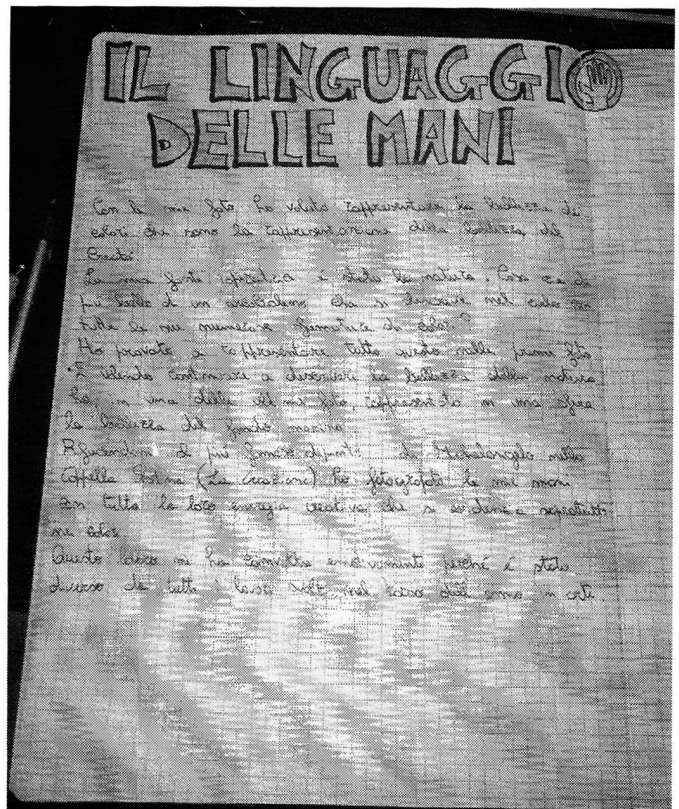 IL LINGUAGGIO
DELLE MANI
Con le mie foto ho voluto rappresentare la bellezza dei
colori che sono la rappresentazione della bellezza del
Creato.
La mia fonte è stata la natura. Cosa c'è di
più bello di un arcobaleno che si nel cielo con
tutte le sue numerose sfumature di color.?
Ho provato a rappresentare tutto questo nella prima foto
E volendo continuare a descrivere la bellezza della natura
ho in una delle mie foto, rappresentato in una sfera
la bellezza del fondo marino
al più famoso dipinto di Michelangelo nella
Cappella Sistina (La Creazione) ho fotografato le mie mani
con tutta la loro energia creativa che si evidenzia soprattutto
nei color.
Questo lavoro mi ha emotivamente perché è stato
diverso da tutti i lavori svolti nel corso dell'anno in arte.